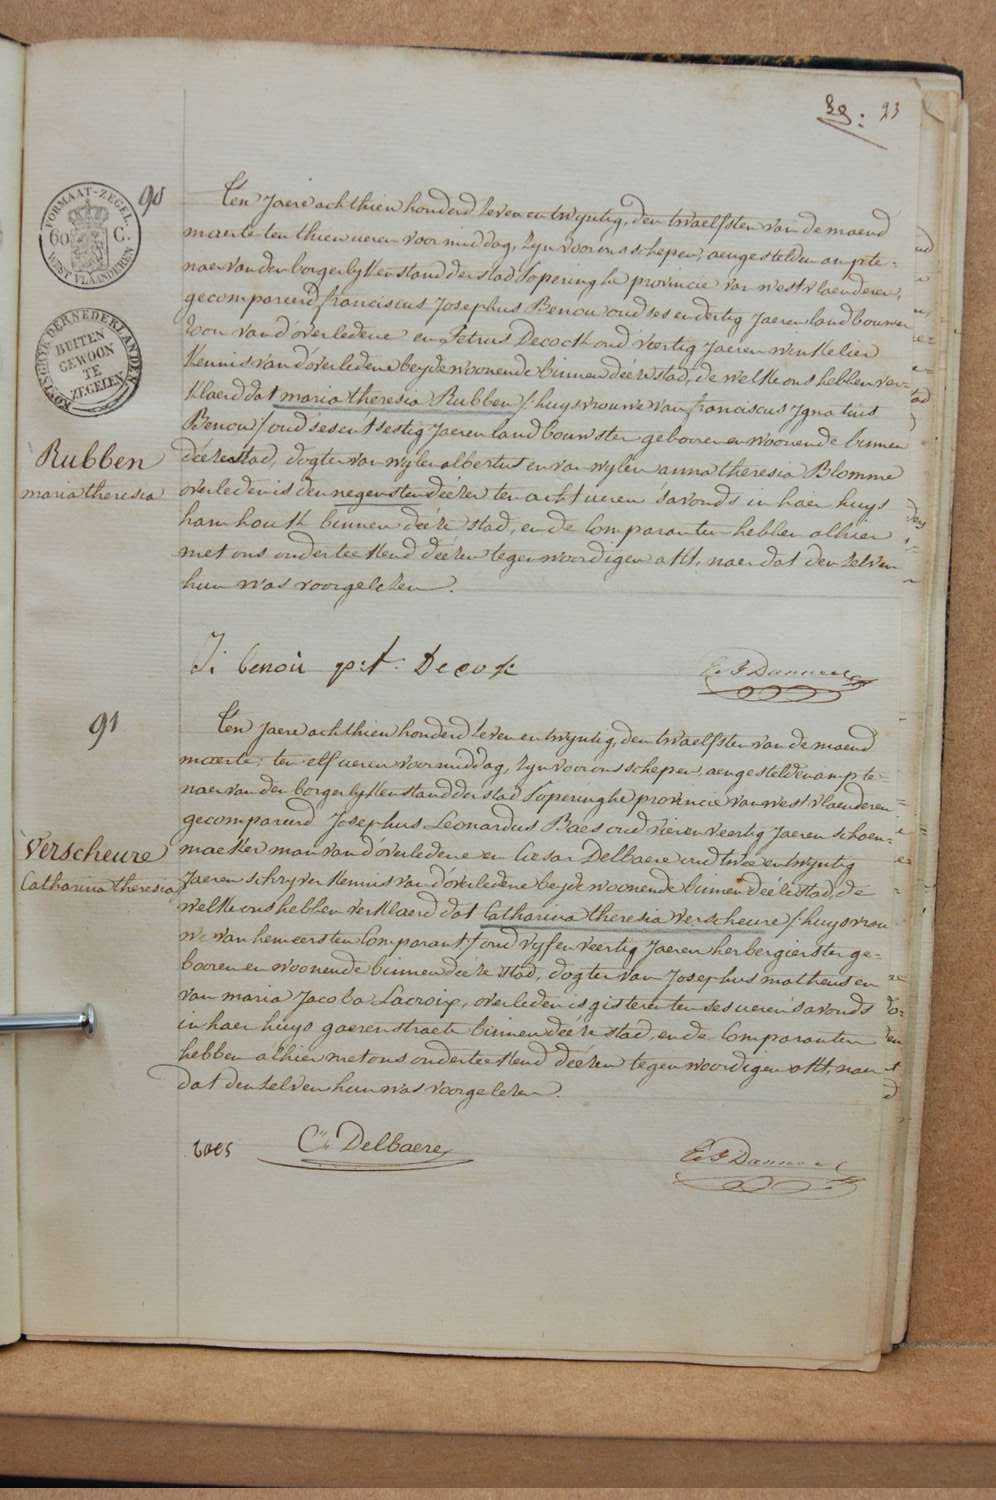 23
FORMAAT-ZEGEL.
60 C.
WEST VLAANDEREN
KONINGRYK DER NEDERLANDEN
BUITEN
GEWOON
TE
ZEGELEN
90
Rubben
maria theresia
Ten Jaere achthien honderd zeven en twyntig, den twaelfsten van de maend
maerte ten thien ueren voormiddag, zyn voor ons schepen, aengestelden ampte=
naer van den borgerlyken stand der stad Poperinghe provincie van westvlaenderen,
gecompareerd franciscus Josephus Benou oud ses en dertig Jaeren landbouwer
zoon van d'overledene en Petrus Decock oud veertig Jaeren winkelier
kennis van d'overledene beyde woonende binnen deéze stad, de welke ons hebben ver=
klaerd dat maria theresia Rubben /huysvrouwe van franciscus Ignatius
Benou/ oud sesentsestig Jaeren landbouwster gebooren en woonende binnen
deéze stad, dogter van wylen albertus en van wylen anna theresia Blomme
overleden is den negensten deézer ten acht ueren s'avonds in haer huys
hamhoutk binnen deéze stad, en de Comparanten hebben alhier
met ons onderteekend deézen tegenwoordigen akt, naer dat den zelven
hun was voorgelezen.
F: benoù p:f: Decock
91
Verscheure
Catharina theresia
Ten Jaere achthien honderd zeven en twyntig, den twaelfsten van de maend
maerte, ten elf ueren voormiddag, zyn voor ons schepen, aengestelden ampte=
naer van den borgerlyken stand der stad Poperinghe provincie van westvlaenderen
gecompareerd Josephus Leonardus Baes oud vier en veertig Jaeren schoen=
maeker man van d'overledene en Cesar Delbaere oud twee en twyntig
Jaeren schryver kennis van d'overledene beyde woonende binnen deéze stad, de
welke ons hebben verklaerd dat Catharina theresia Verscheure /huysvrou
we van hem eersten Comparant/ oud vyf en veertig Jaeren herbergierster ge=
booren en woonende binnen deéze stad, dogter van Josephus matheus en
van maria Jacoba Lacroix, overleden is gisteren ten ses ueren s'avonds
in haer huys gaerenstraete binnen deéze stad, en de Comparanten
hebben alhier met ons onderteekend deézen tegenwoordigen akt, naer
dat den zelven hun was voorgelezen.
baes C. Delbaere